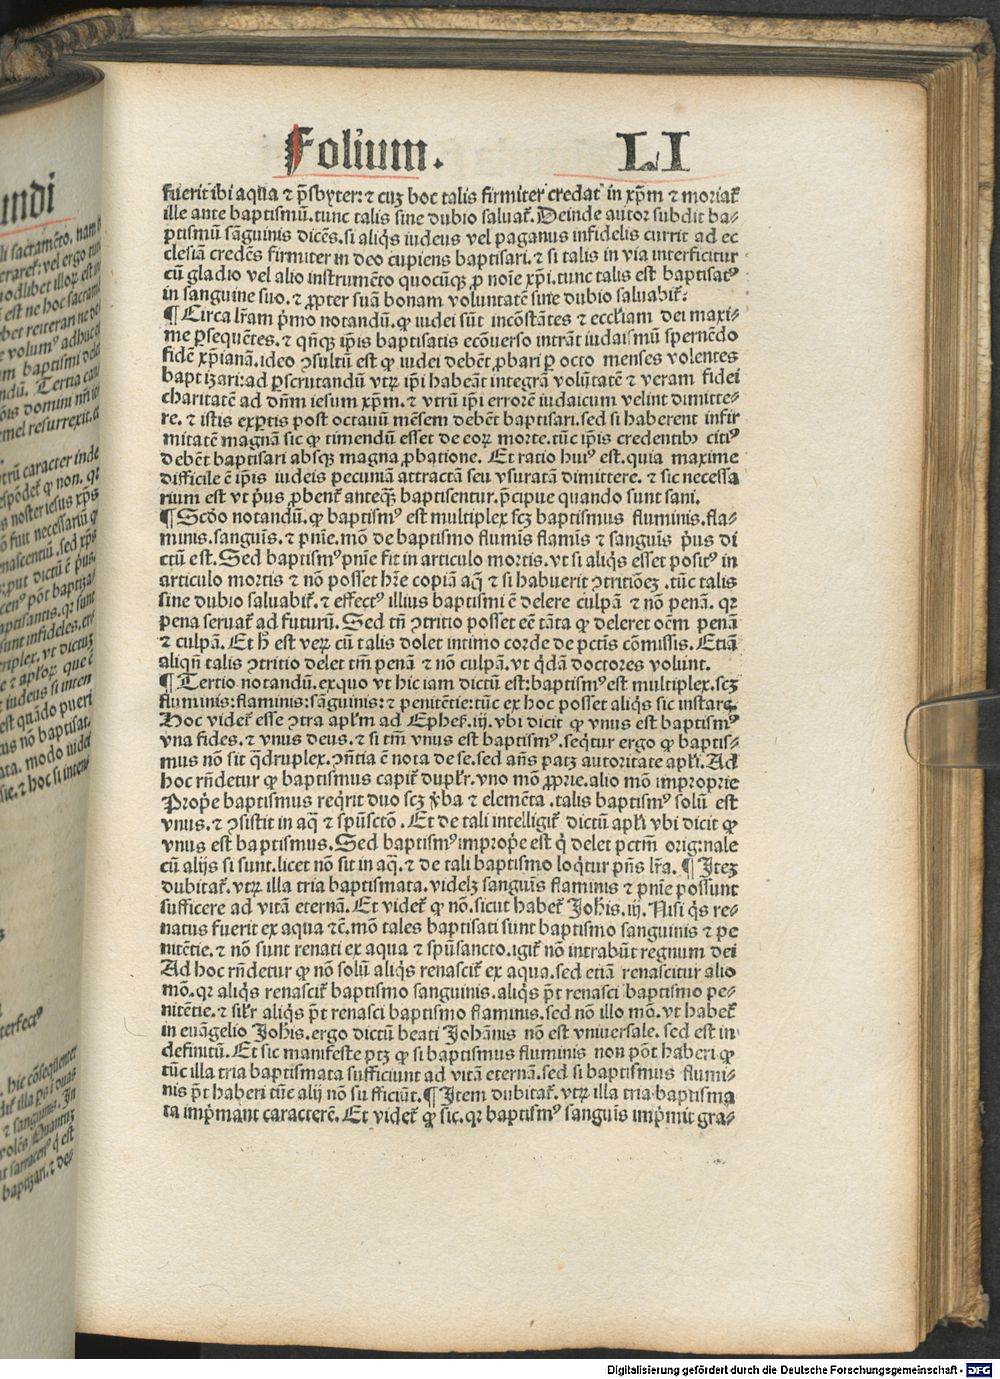 Folium. LI
fuerit ibi aqua ⁊ p̄sbyter: ⁊ cuꝫ hoc talis firmiter credat in xp̄m ⁊ moriat᷑
ille ante baptismū. tunc talis sine dubio saluat᷑. Deinde autor subdit ba-
ptismū sāguinis dicēs. si aliq̇s iudeus vel paganus infidelis currit ad ec
clesiam credēs firmiter in deo cupiens baptisari. ⁊ si talis in via interficitur
cū gladio vel alio instrumēto quocūqꝫ ꝓ noīe xp̄i. tunc talis est baptisatꝰ
in sanguine suo. ⁊ ꝓpter suā bonam voluntatē sine dubio saluabit᷑.
¶ Circa lr̄am p̄mo notandū. ꝙ iudei sūt incōstātes ⁊ eccl'iam dei maxi-
me ꝑsequētes. ⁊ qn̄qꝫ ip̄is baptisatis ecōuerso intrāt iudaismū spernēdo
fidē xp̄ianā. ideo ꝯsultū est ꝙ iudei debēt ꝓbari ꝑ octo menses volentes
baptizari: ad ꝑscrutandū vtꝝ ip̄i habeāt integrā volūtatē ⁊ veram fidei
charitatē ad dn̄m iesum xp̄m. ⁊ vtrū ip̄i errorē iudaicum velint dimitte-
re. ⁊ istis exꝑtis post octauū mēsem debēt baptisari. sed si haberent infir
mitatē magnā sic ꝙ timendū esset de eoꝝ morte. tūc ip̄is credentibꝫ citiꝰ
debēt baptisari absqꝫ magna ꝓbatione. Et ratio huiꝰ est. quia maxime
difficile ē ip̄is iudeis pecuniā attractā seu vsuratā dimittere. ⁊ sic necessa
rium est vt p̄us ꝓbent᷑ anteqꝫ baptisentur. p̄cipue quando sunt sani.
¶ Scd̄o notandū. ꝙ baptismꝰ est multiplex scꝫ baptismus fluminis. fla-
minis. sanguīs. ⁊ pn̄ie. mō de baptismo flumīs flamīs ⁊ sanguīs p̄us di
ctū est. Sed baptismꝰ pn̄ie fit in articulo mortis. vt si aliq̇s esset positꝰ in
articulo mortis ⁊ nō posset hr̄e copiā aq̄ ⁊ si habuerit ꝯtritiōeꝫ. tūc talis
sine dubio saluabit᷑. ⁊ effectꝰ illius baptismi ē delere culpā ⁊ nō penā. qꝛ
pena seruat᷑ ad futurū. Sed tn̄ ꝯtritio posset eē tāta ꝙ deleret oēm penā
⁊ culpā. Et h̄ est veꝝ cū talis dolet intimo corde de pctīs cōmissis. Etiā
aliqn̄ talis ꝯtritio delet tm̄ penā ⁊ nō culpā. vt q̇dā doctores volunt.
¶ Tertio notandū. exquo vt hic iam dictū est: baptismꝰ est multiplex. scꝫ
fluminis: flaminis: sāguinis: ⁊ penitētie: tūc ex hoc posset aliq̇s sic instare.
Hoc videt᷑ esse ꝯtra apl'm ad Ephes. iij. vbi dicit ꝙ vnus est baptismꝰ
vna fides. ⁊ vnus deus. ⁊ si tm̄ vnus est baptismꝰ. seq̇tur ergo ꝙ baptis-
mus nō sit q̇druplex. ꝯn̄tia ē nota de se. sed an̄s patꝫ autoritate apl'i. Ad
hoc rn̄detur ꝙ baptismus capit᷑ dupl'r. vno mō ꝓprie. alio mō improprie
Prop̄e baptismus req̇rit duo scꝫ v̄ba ⁊ elemēta. talis baptismꝰ solū est
vnus. ⁊ ꝯsistit in aq̄ ⁊ spūsctō. Et de tali intelligit᷑ dictū apl'i vbi dicit ꝙ
vnus est baptismus. Sed baptismꝰ improp̄e est q̇ delet pctm̄ originale
cū alijs si sunt. licet nō sit in aq̄. ⁊ de tali baptismo loq̇tur pn̄s lr̄a. ¶ Iteꝫ
dubitat᷑. vtꝝ illa tria baptismata. videlꝫ sanguīs flaminis ⁊ pn̄ie possunt
sufficere ad vitā eternā. Et videt᷑ ꝙ nō. sicut habet᷑ Joh̄is. iij. Nisi q̇s re-
natus fuerit ex aqua ⁊c̄. mō tales baptisati sunt baptismo sanguinis ⁊ pe
nitētie. ⁊ nō sunt renati ex aqua ⁊ spūsancto. igit᷑ nō intrabūt regnum dei
Ad hoc rn̄detur ꝙ nō solū aliq̇s renascit᷑ ex aqua. sed etiā renascitur alio
mō. qꝛ aliq̇s renascit᷑ baptismo sanguinis. aliq̇s p̄t renasci baptismo pe-
nitētie. ⁊ sil'r aliq̇s p̄t renasci baptismo flaminis. sed nō illo mō. vt habet᷑
in euāgelio Joh̄is. ergo dictū beati Johānis nō est vniuersale. sed est in
definitū. Et sic manifeste ptꝫ ꝙ si baptismus fluminis non pōt haberi ꝙ
tūc illa tria baptismata sufficiunt ad vitā eternā. sed si baptismus flumi-
nis p̄t haberi tūc alij nō sufficiūt. ¶ Item dubitat᷑. vtꝝ illa tria baptisma
ta imp̄mant caracterē. Et videt᷑ ꝙ sic. qꝛ baptismꝰ sanguīs imp̄mit gra-
Digitalisierung gefördert durch die Deutsche Forschungsgemeinschaft - DFG